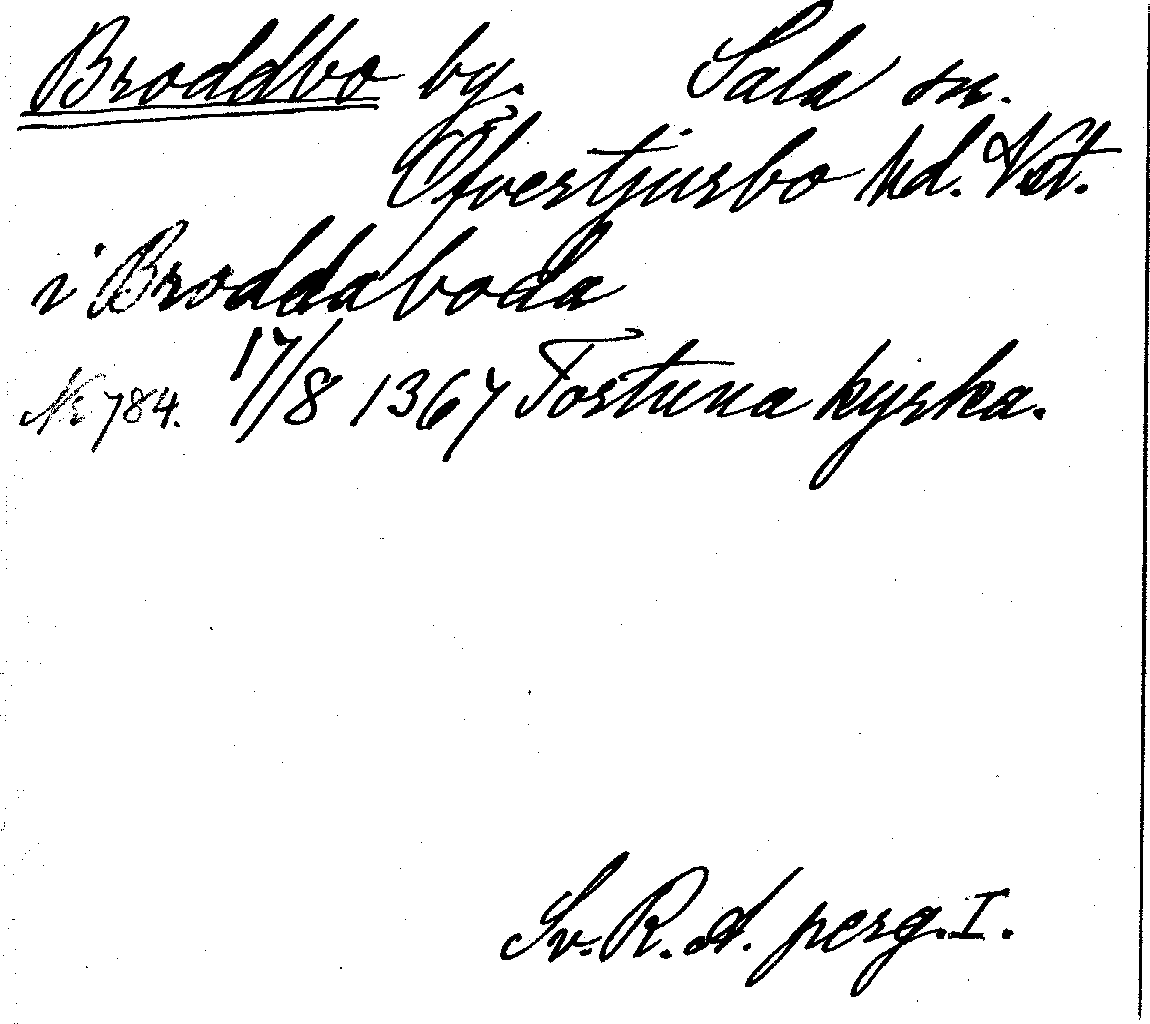 Broddbo by. Sala sn.
Öfvertjurbo hd. Vst.
i Broddaboda
Nr 784. 17/8 1367 Tortuna kyrka.
Sv. R. A. perg. I.